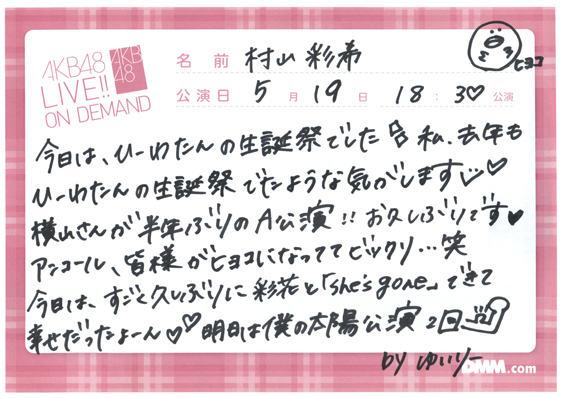 AKB48
LIVE!!
ON DEMAND
AKB
48
名前 村山彩希
ヒヨコ
公演日 5月19日 18:30♡公演
今日は、ひーわたんの生誕祭でした 私、去年も
ひーわたんの生誕祭でたような気がします♡
横山さんが半年ぶりのA公演!! お久しぶりです♥
アンコール、皆様がヒヨコになっててビックリ…笑
今日は、すごく久しぶりに彩花と「she's gone」できて
幸せだったよーん♡♡ 明日は僕の太陽公演2回
by ゆいりー
DMM.com